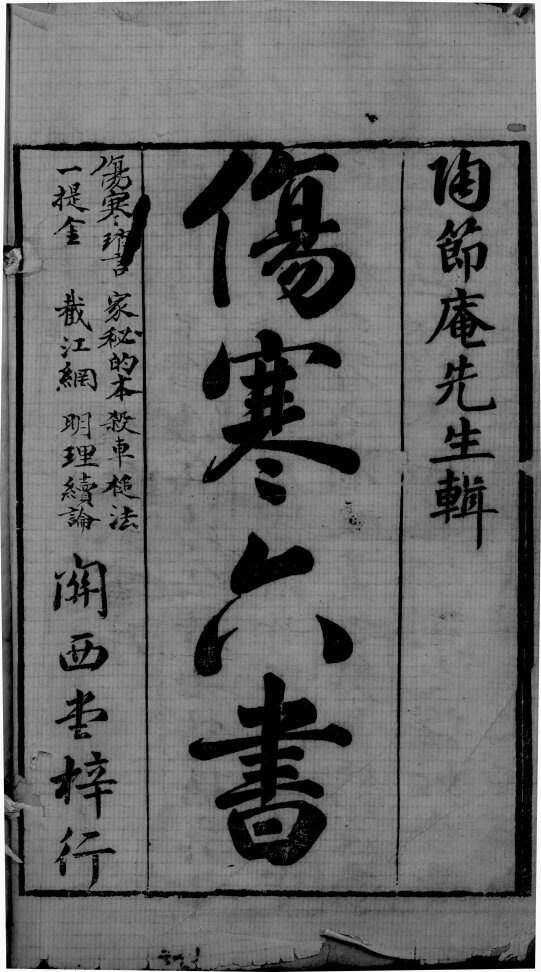 陶節庵先生輯
傷寒六書
傷寒瑣言 家秘的本 殺車槌法
一提金 截江網 明理續論
關西堂梓行